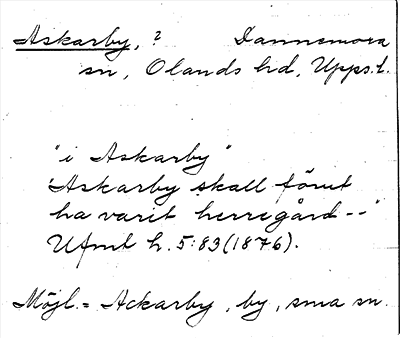 Askarby, ? Dannemora
sn, Olands hd, Upps. l.
"i Askarby"
"Askarby skall förut
ha varit herregård --"
Ufmt h. 5:83 (1876).
Möjl. = Ackarby, by, sma sn.